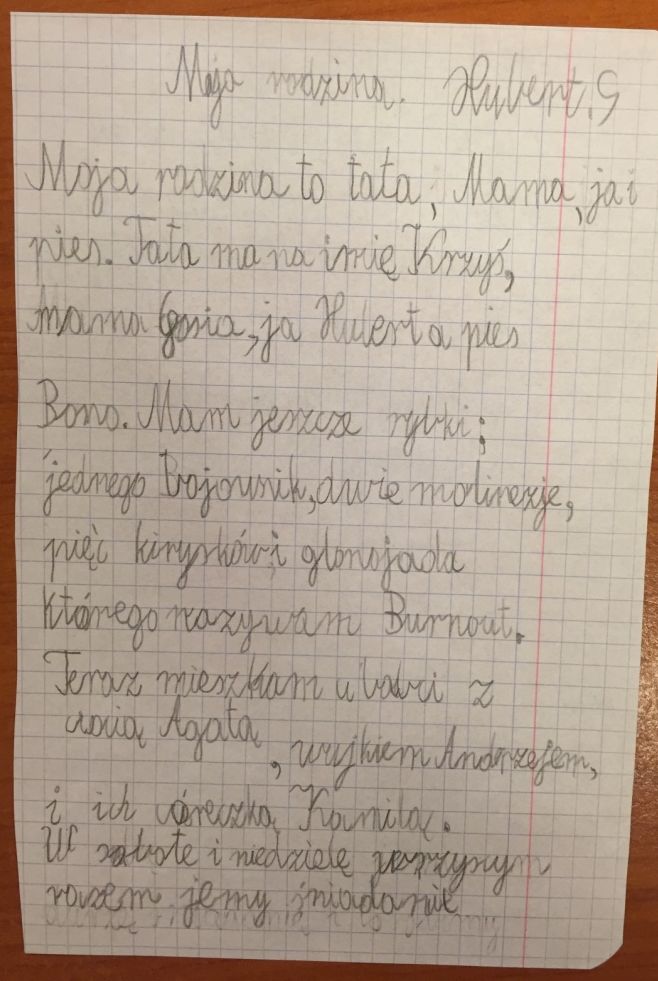 Moja rodzina. Hubert.G
Moja rodzina to tata, Mama, ja i
pies. Tata ma na imię Krzyś,
mama Gosia, ja Huert a pies
Bono. Mam jeszcze rybki;
jednego Bojownik, dwie molinezje,
pięć kirysków i glonojada
którego nazywam Burnout.
Teraz mieszkam u babci z
ciocią Agatą, wujkiem Andrzejem,
i ich córeczką Kamilą.
W sobote i niedziele
razem jemy śniadanie